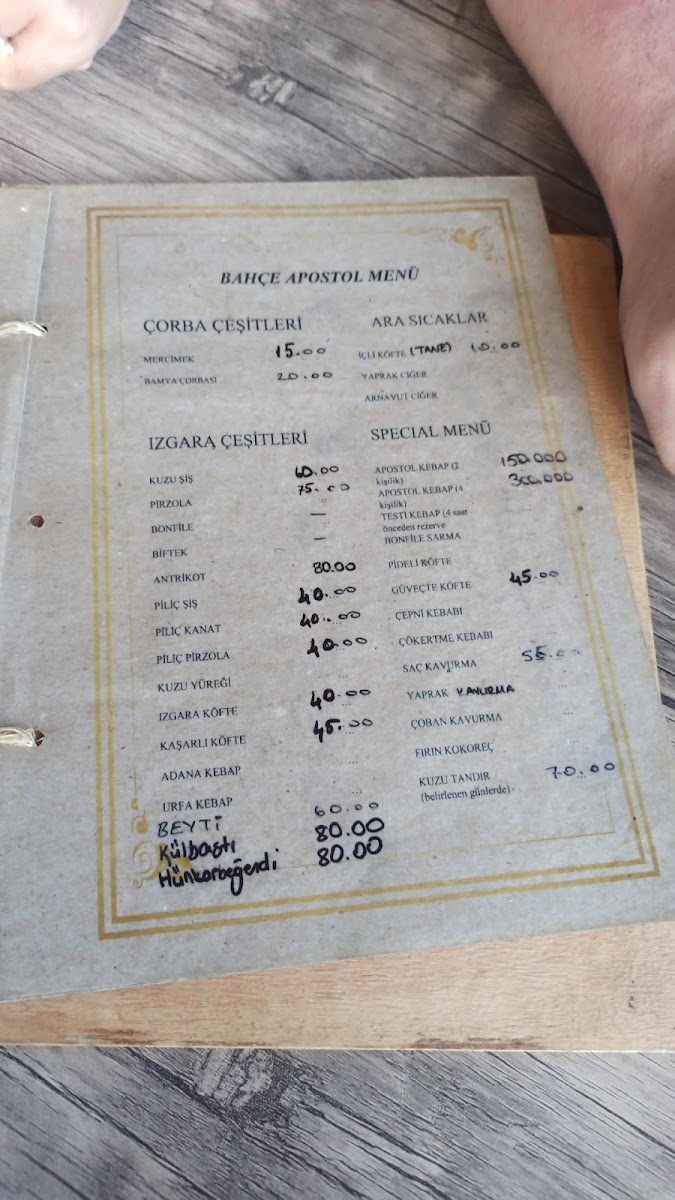 BAHÇE APOSTOL MENÜ
ÇORBA ÇEŞİTLERİ
MERCİMEK 15.00
BAMYA ÇORBASI 20.00
IZGARA ÇEŞİTLERİ
KUZU ŞİŞ 60.00
PİRZOLA 75.00
BONFİLE —
BİFTEK —
ANTRİKOT 80.00
PİLİÇ ŞİŞ 40.00
PİLİÇ KANAT 40.00
PİLİÇ PİRZOLA 40.00
KUZU YÜREĞİ
IZGARA KÖFTE 40.00
KAŞARLI KÖFTE 45.00
ADANA KEBAP
URFA KEBAP
BEYTİ 60.00
Külbastı 80.00
Hünkarbeğendi 80.00
ARA SICAKLAR
İÇLİ KÖFTE (TANE) 10.00
YAPRAK CİĞER
ARNAVUT CİĞER
SPECIAL MENÜ
APOSTOL KEBAP (2 150.000
kişilik)
APOSTOL KEBAP (4 300.000
kişilik)
TESTİ KEBAP (4 saat
önceden rezerve
BONFİLE SARMA
PİDELİ KÖFTE
GÜVEÇTE KÖFTE 45.00
ÇEPNİ KEBABI
ÇÖKERTME KEBABI
SAÇ KAVURMA 55.00
YAPRAK KAVURMA
ÇOBAN KAVURMA
FIRIN KOKOREÇ
KUZU TANDIR 70.00
(belirlenen günlerde)